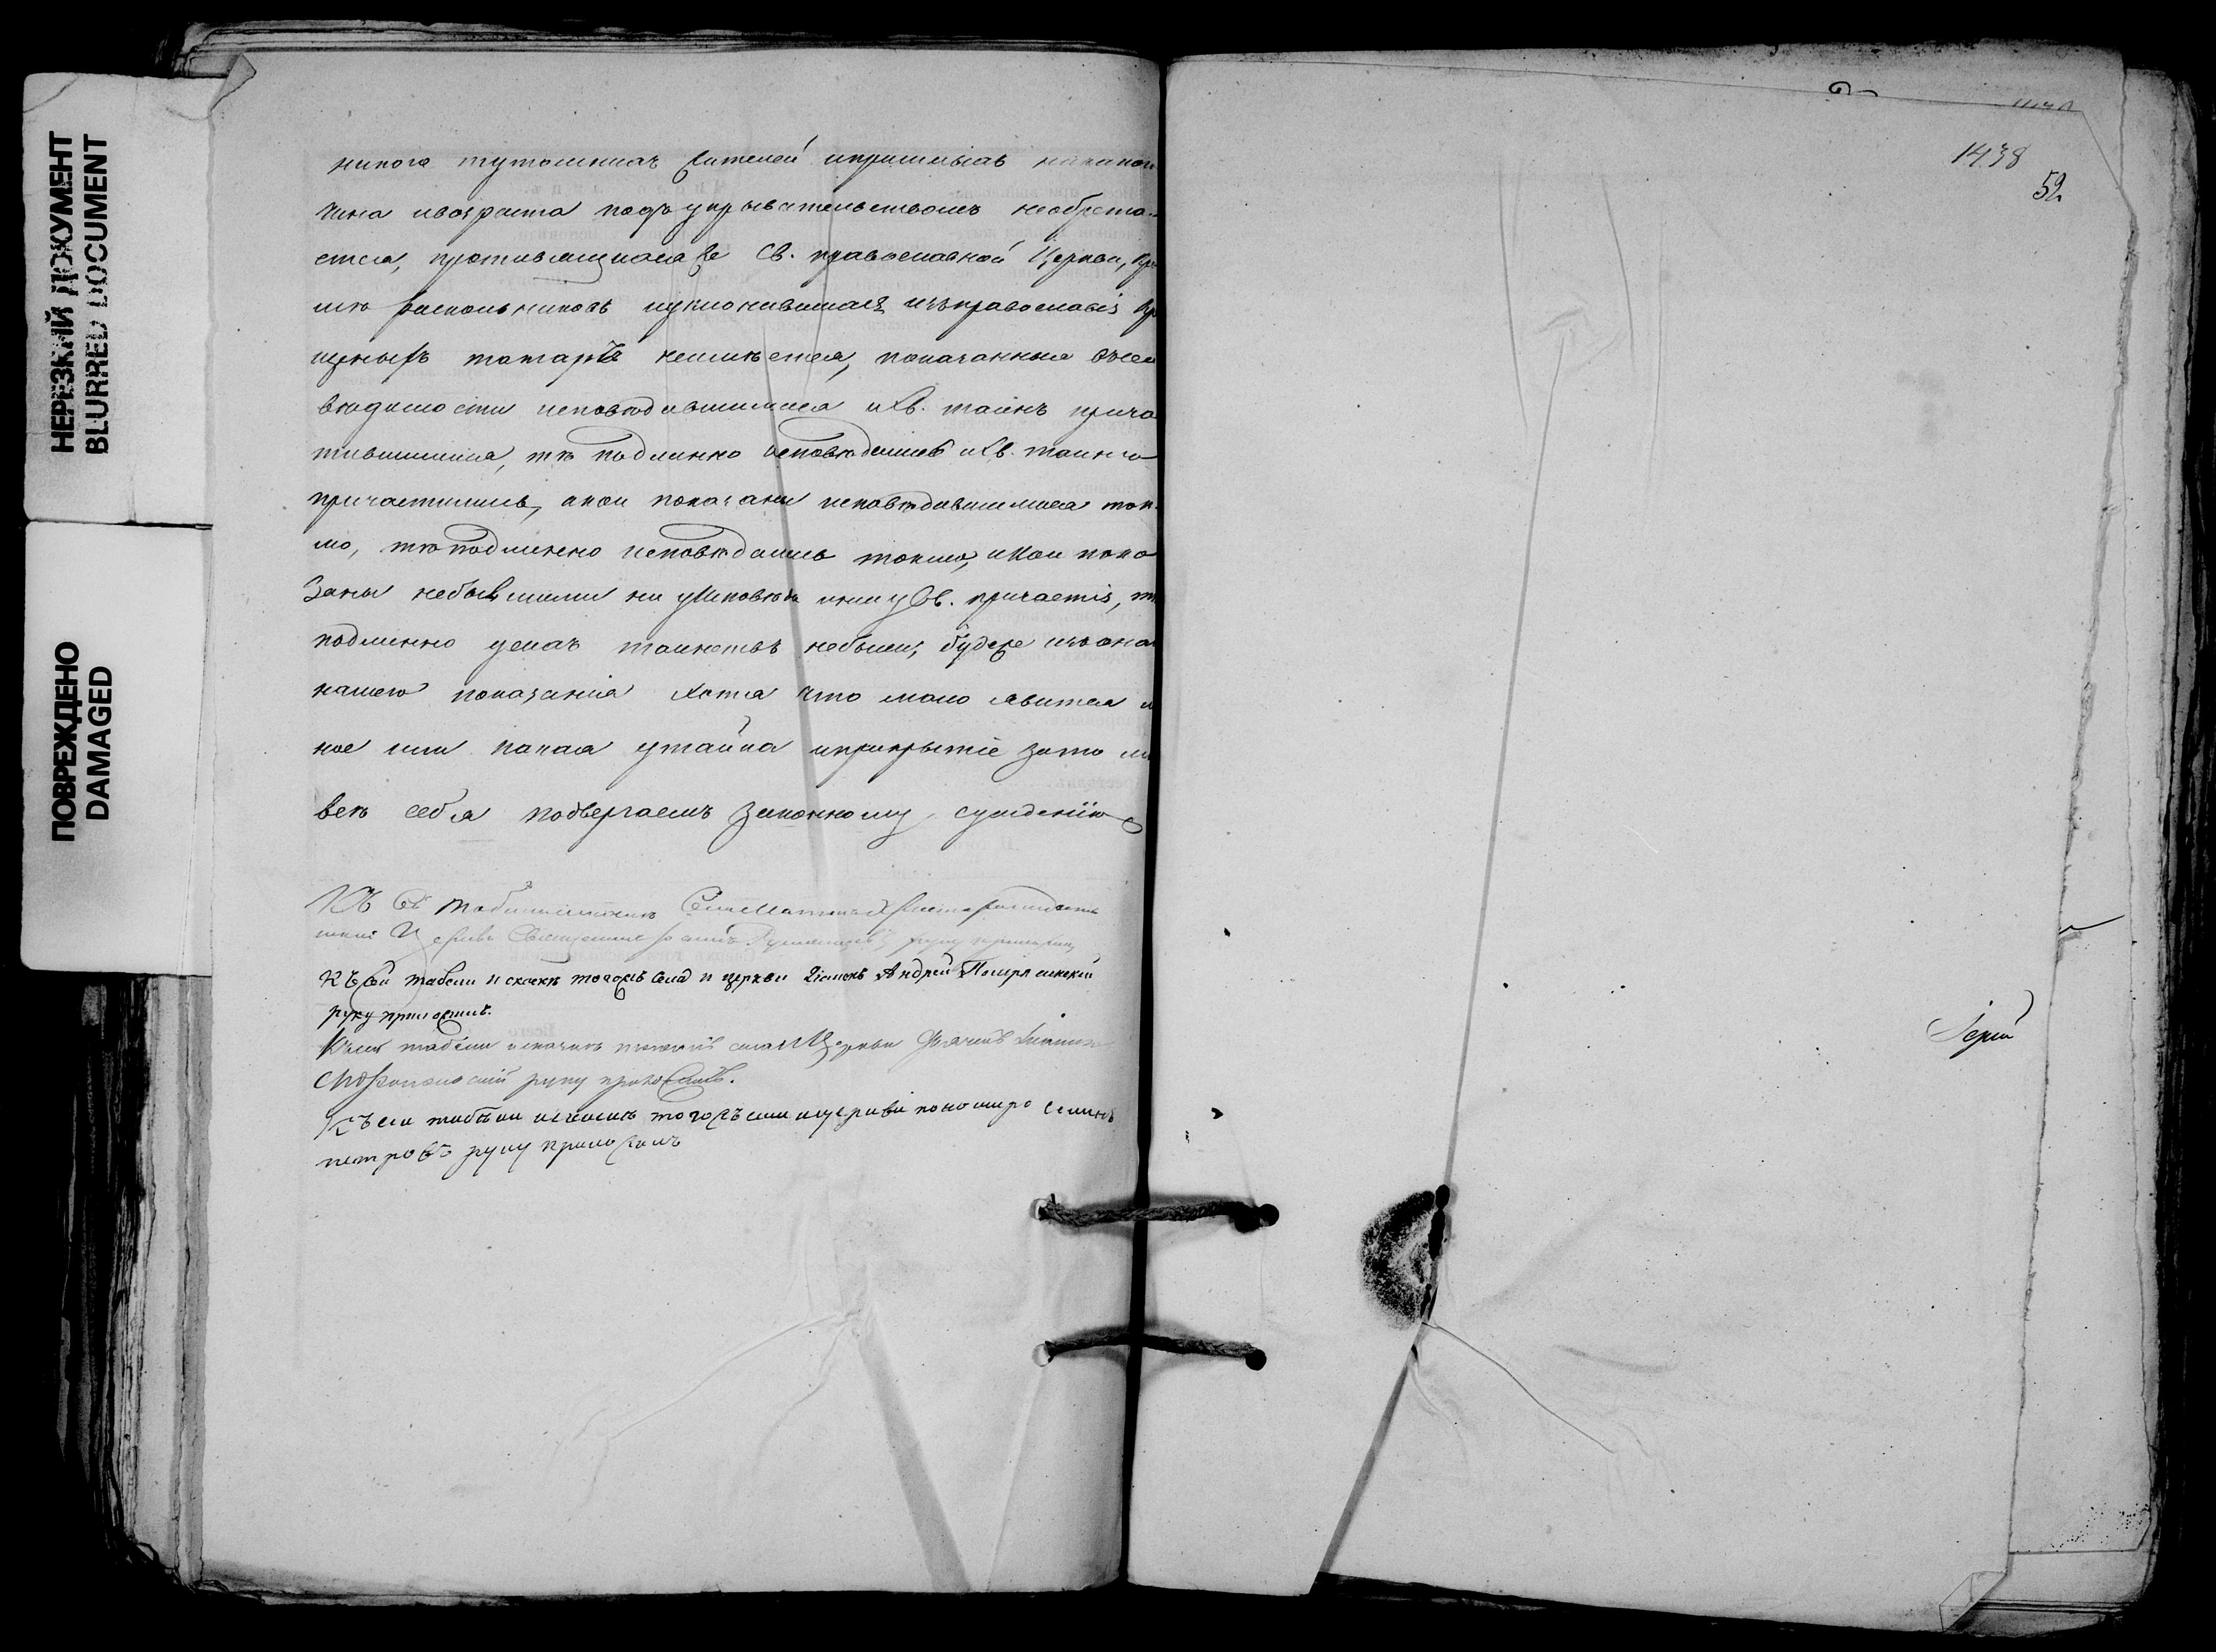 НЕРЕЗКИЙ ДОКУМЕНТ
BLURRED DOCUMENT
ПОВРЕЖДЕНО
DAMAGED
никого тутошнихъ жителей ипришлыхъ никаког
чина ивозраста подъ укрывательствомъ необрета-
ется, противящихсяже Св. православной Церкви, кро
мѣ раскольниковъ иуклонившихся изъправославія кр
щеныхъ татаръ неимѣется, показанныя въсей
вѣдомости исповѣдавшимися иСв. таинъ прича
тившимися, тѣ подлинно исповѣдались иСв. таинъ
причастились, акои показаны исповѣдавшимися ток
мо, тѣподлинно исповѣдались токмо, икои пока
заны небывшими ни уИсповѣди ини уСв. причастія, тѣ
подлинно усихъ таинствъ небыли; будеже изъона
нашего показанія хотя что мало явится и
ное или какая утайка иприкрытіе зато
всѣ себя подвергаемъ законному сужденію
Къ сей
Церкви Священникъ руку приложилъ
Къ сей табели и скаскѣ тогожъ села и церкви Діаконъ Андрей
руку приложилъ.
Къ сей табели искаскѣ тогожъ села и Церкви Дьячекъ
руку приложилъ.
Къ сей табели искаскѣ тогожъ села ицеркви пономарь
петровъ руку приложилъ
1438
52
Іерей